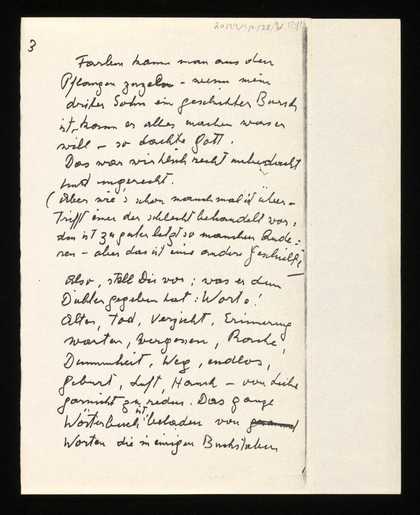 3
Farben kann man aus den
Pflanzen – wenn mein
dritter Sohn ein geschickter Bursch
ist, kann er alles machen was er
will – so dachte Gott.
Das war wirklich recht unbedacht
und ungerecht.
(Aber wie's schon manchmal ist über-
trifft einer der schlecht behandelt war,
den ist zu guter letzt so manchen Ande-
ren – aber das ist eine andere Geschichte)
Also, stell Dir vor; was er dem
Dichter gegeben hat: Worte!
Alter, Tod, Verzicht, Erinnerung
warten, vergessen, Rache,
Dummheit, Weg, endlos,
Geburt, Luft, Hauch – von Liebe
garnicht zu reden. Das ganze
Wörterbuch ist beladen von
Worten die in einigen Buchstaben